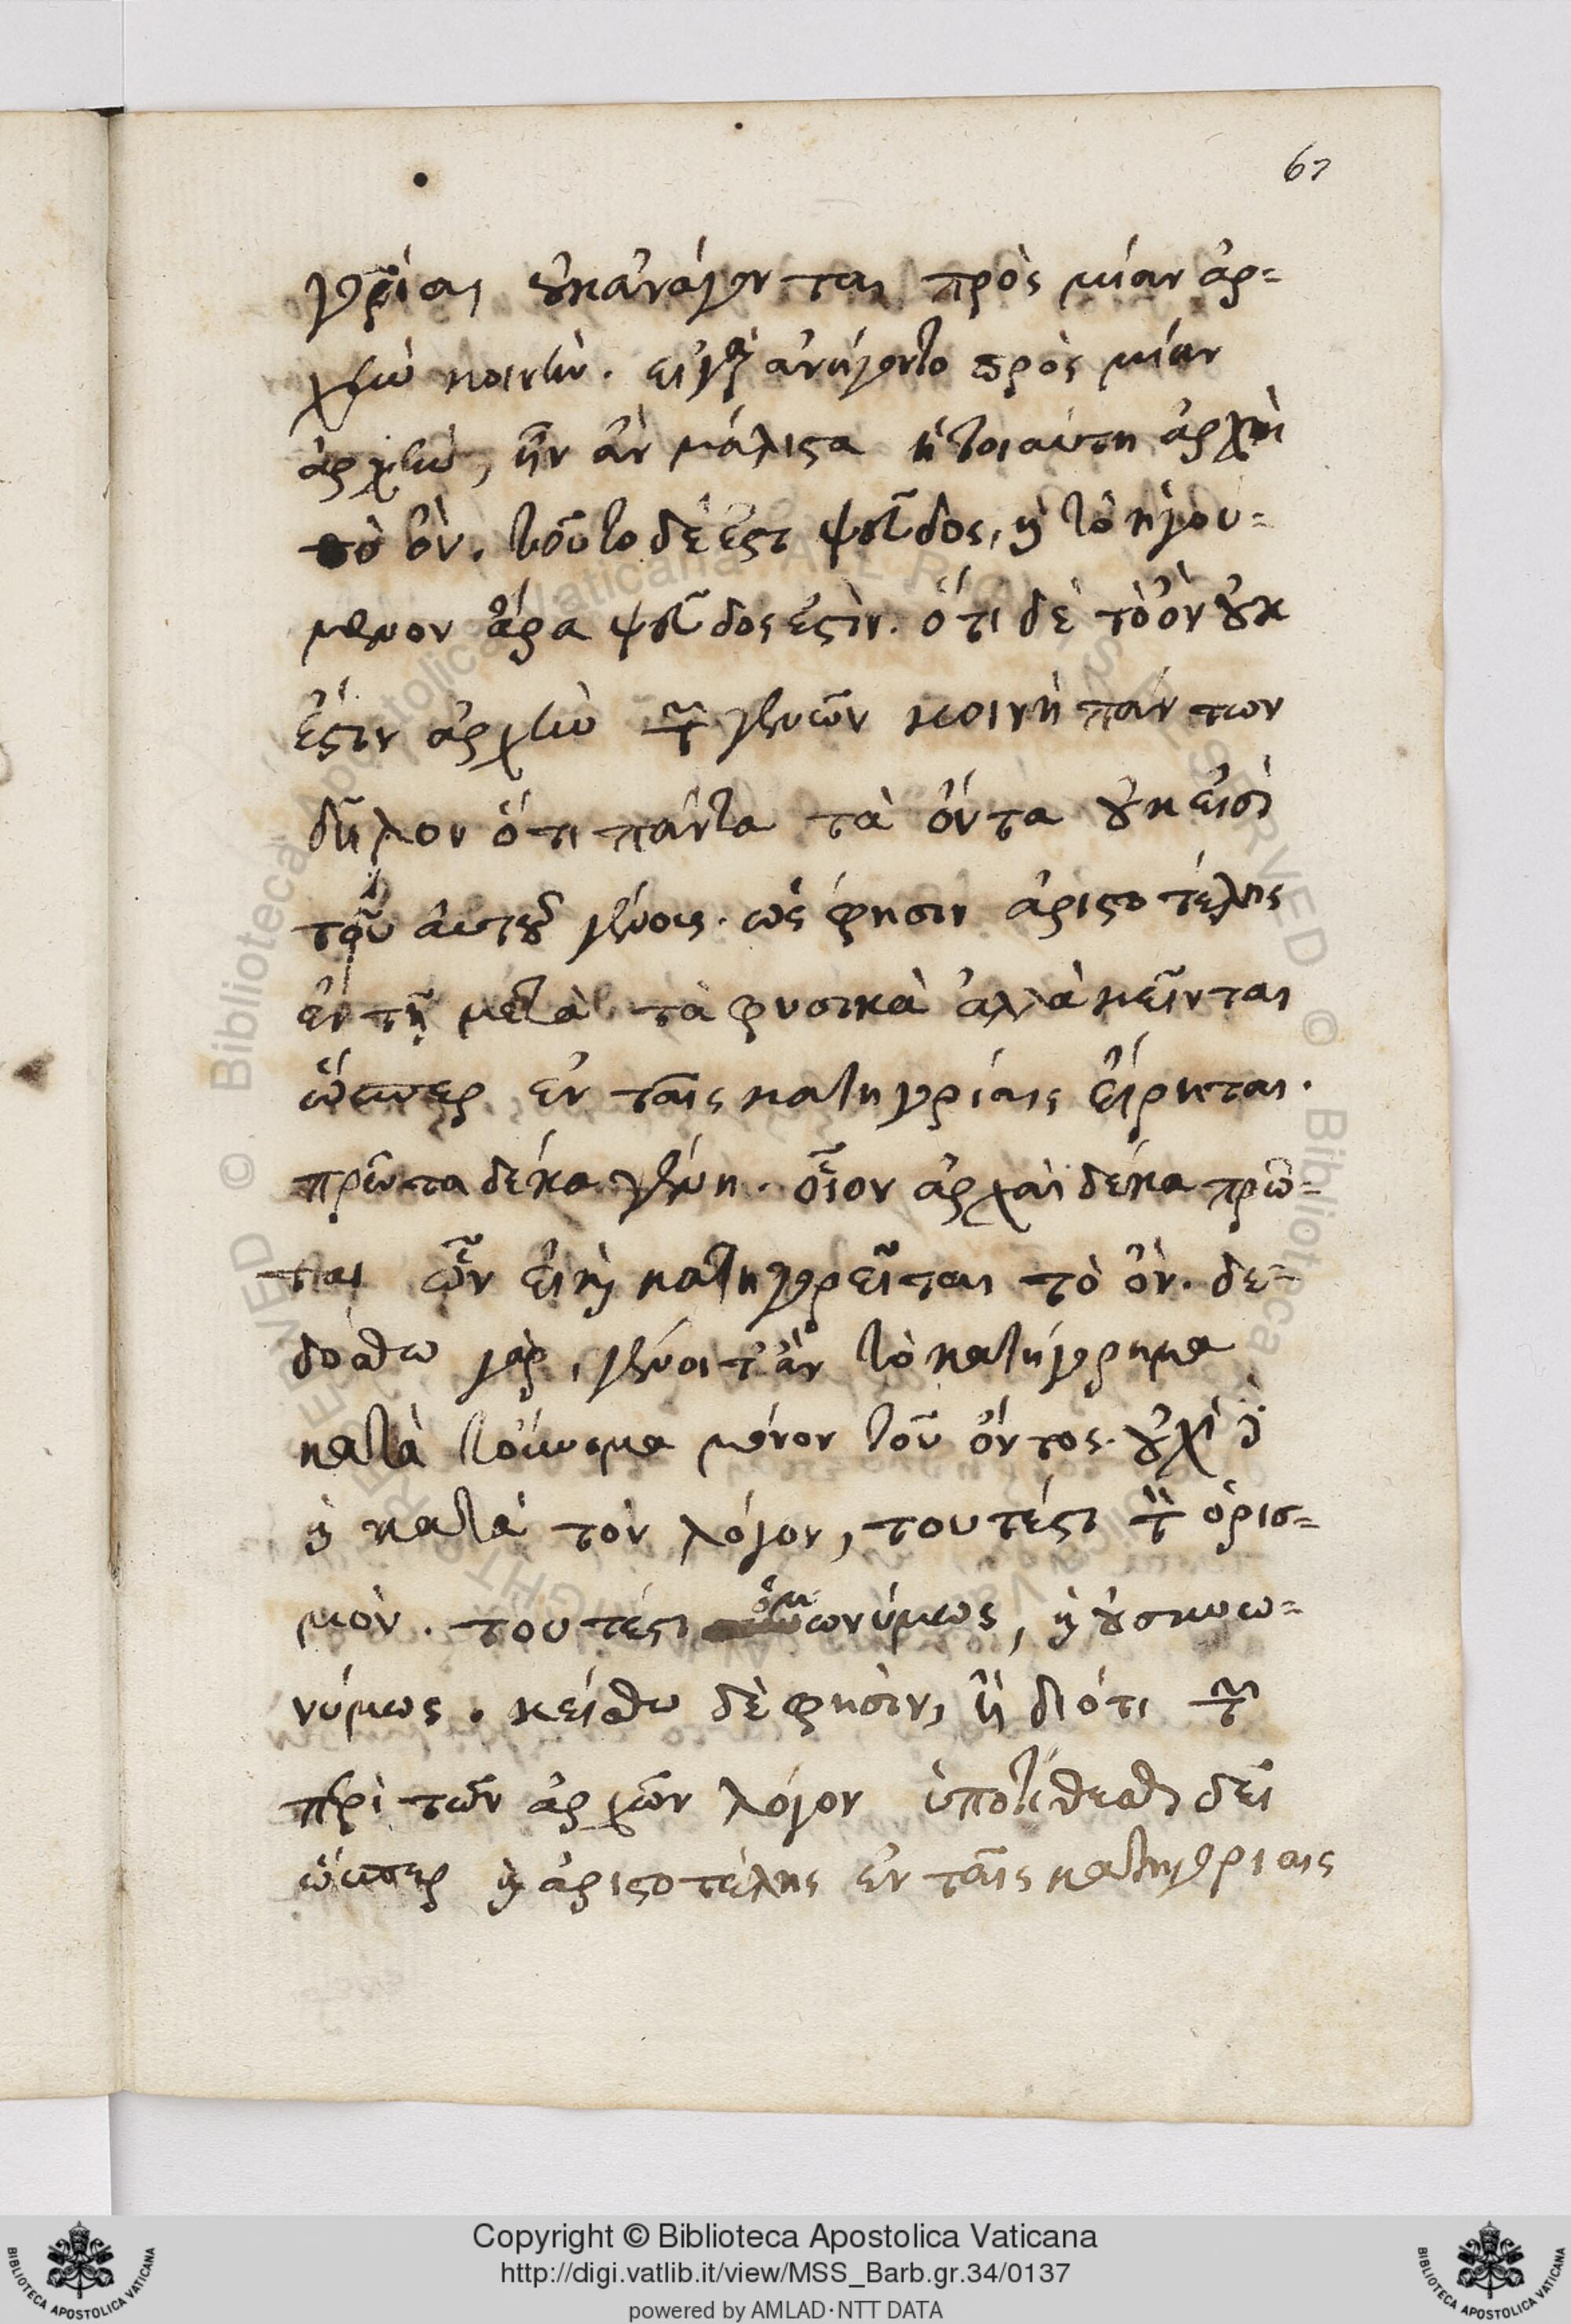 67
γορίαι οὐκ ἀνάγονται πρὸς μίαν ἀρ=
χὴν κοινήν. εἰ γὰρ ἀνήγοντο πρὸς μίαν
ἀρχὴν, ἦν ἂν μάλιστα ἡ τοιαύτη ἀρχὴ
τὸ ὄν. τοῦτο δέ ἐστι ψεῦδος, καὶ τὸ ἡγού=
μενον ἄρα ψεῦδος ἐστίν. ὅτι δὲ τὸ ὂν οὐκ
ἔστιν ἀρχὴ τῶν γενῶν κοινὴ πάντων
δῆλον ὅτι πάντα τὰ ὄντα οὐκ εἰσὶ
τοῦ αὐτοῦ γένους. ὥς φησιν ἀριστοτέλης
ἐν τῇ μετὰ τὰ φυσικὰ ἀλλὰ κεῖνται
ὥσπερ ἐν ταῖς κατηγορίαις εἴρηται.
πρῶτα δέκα γένη. οἷον ἀρχαὶ δέκα πρῶ=
ται ὧν εἰ καὶ κατηγορεῖται τὸ ὄν. δε=
δόσθω γὰρ, γένοιτ' ἂν τὸ κατηγόρημα
κατὰ τοὔνομα μόνον τοῦ ὄντος. οὐχὶ δὲ
καὶ κατὰ τὸν λόγον, τουτέστι τὸν ὁρισ=
μόν. τουτέστι ὁμωνύμως, καὶ οὐ συνω=
νύμως. κείσθω δὲ φησὶν, ἢ διότι τὸν
περὶ τῶν ἀρχῶν λόγον ὑποτίθεσθαι δεῖ
ὥσπερ καὶ ἀριστοτέλης ἐν ταῖς κατηγορίαις
Copyright © Biblioteca Apostolica Vaticana
http://digi.vatlib.it/view/MSS_Barb.gr.34/0137
powered by AMLAD·NTT DATA